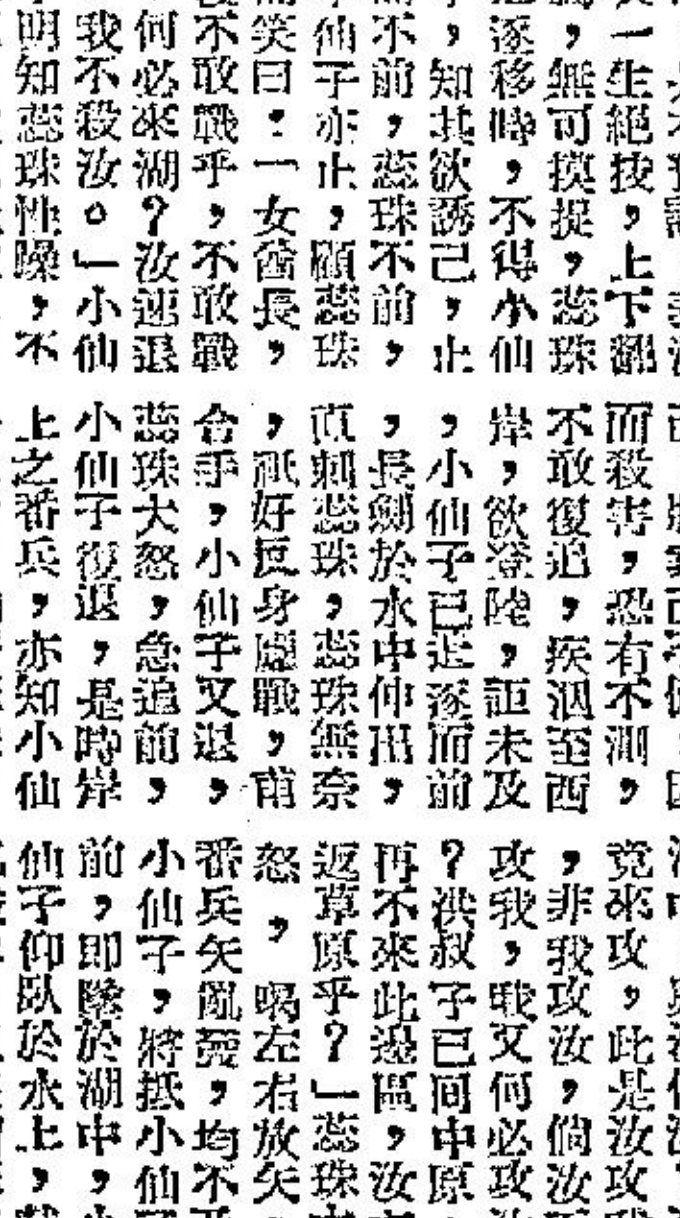 一生絕技,上下翻
,無可摸捉,蕊珠
逐移時,不得小仙
,知其欲誘己,止
不前,蕊珠不前,
仙子亦止,顧蕊珠
笑曰:一女酋長,
不敢戰乎,不敢戰
何必來湖?汝速退
我不殺汝。」小仙
明知蕊珠性躁,不
而殺害,恐有不測,
不敢復追,疾泅至西
岸,欲登陸,詎未及
,小仙子已追逐而前
,長劍於水中伸出,
直刺蕊珠,蕊珠無奈
,祇好反身應戰,甫
合手,小仙子又退,
蕊珠大怒,急追前,
小仙子復退,是時岸
上之番兵,亦知小仙
竟來攻,此是汝攻
,非我攻汝,倘汝攻
攻我,我又何必攻
?洪叔子已回中原
再不來此邊區,汝
返草原乎?」蕊珠
怒,喝左右放矢
番兵矢亂發,均不
小仙子,將抵小仙
前,即墜於湖中,
仙子仰臥於水上,